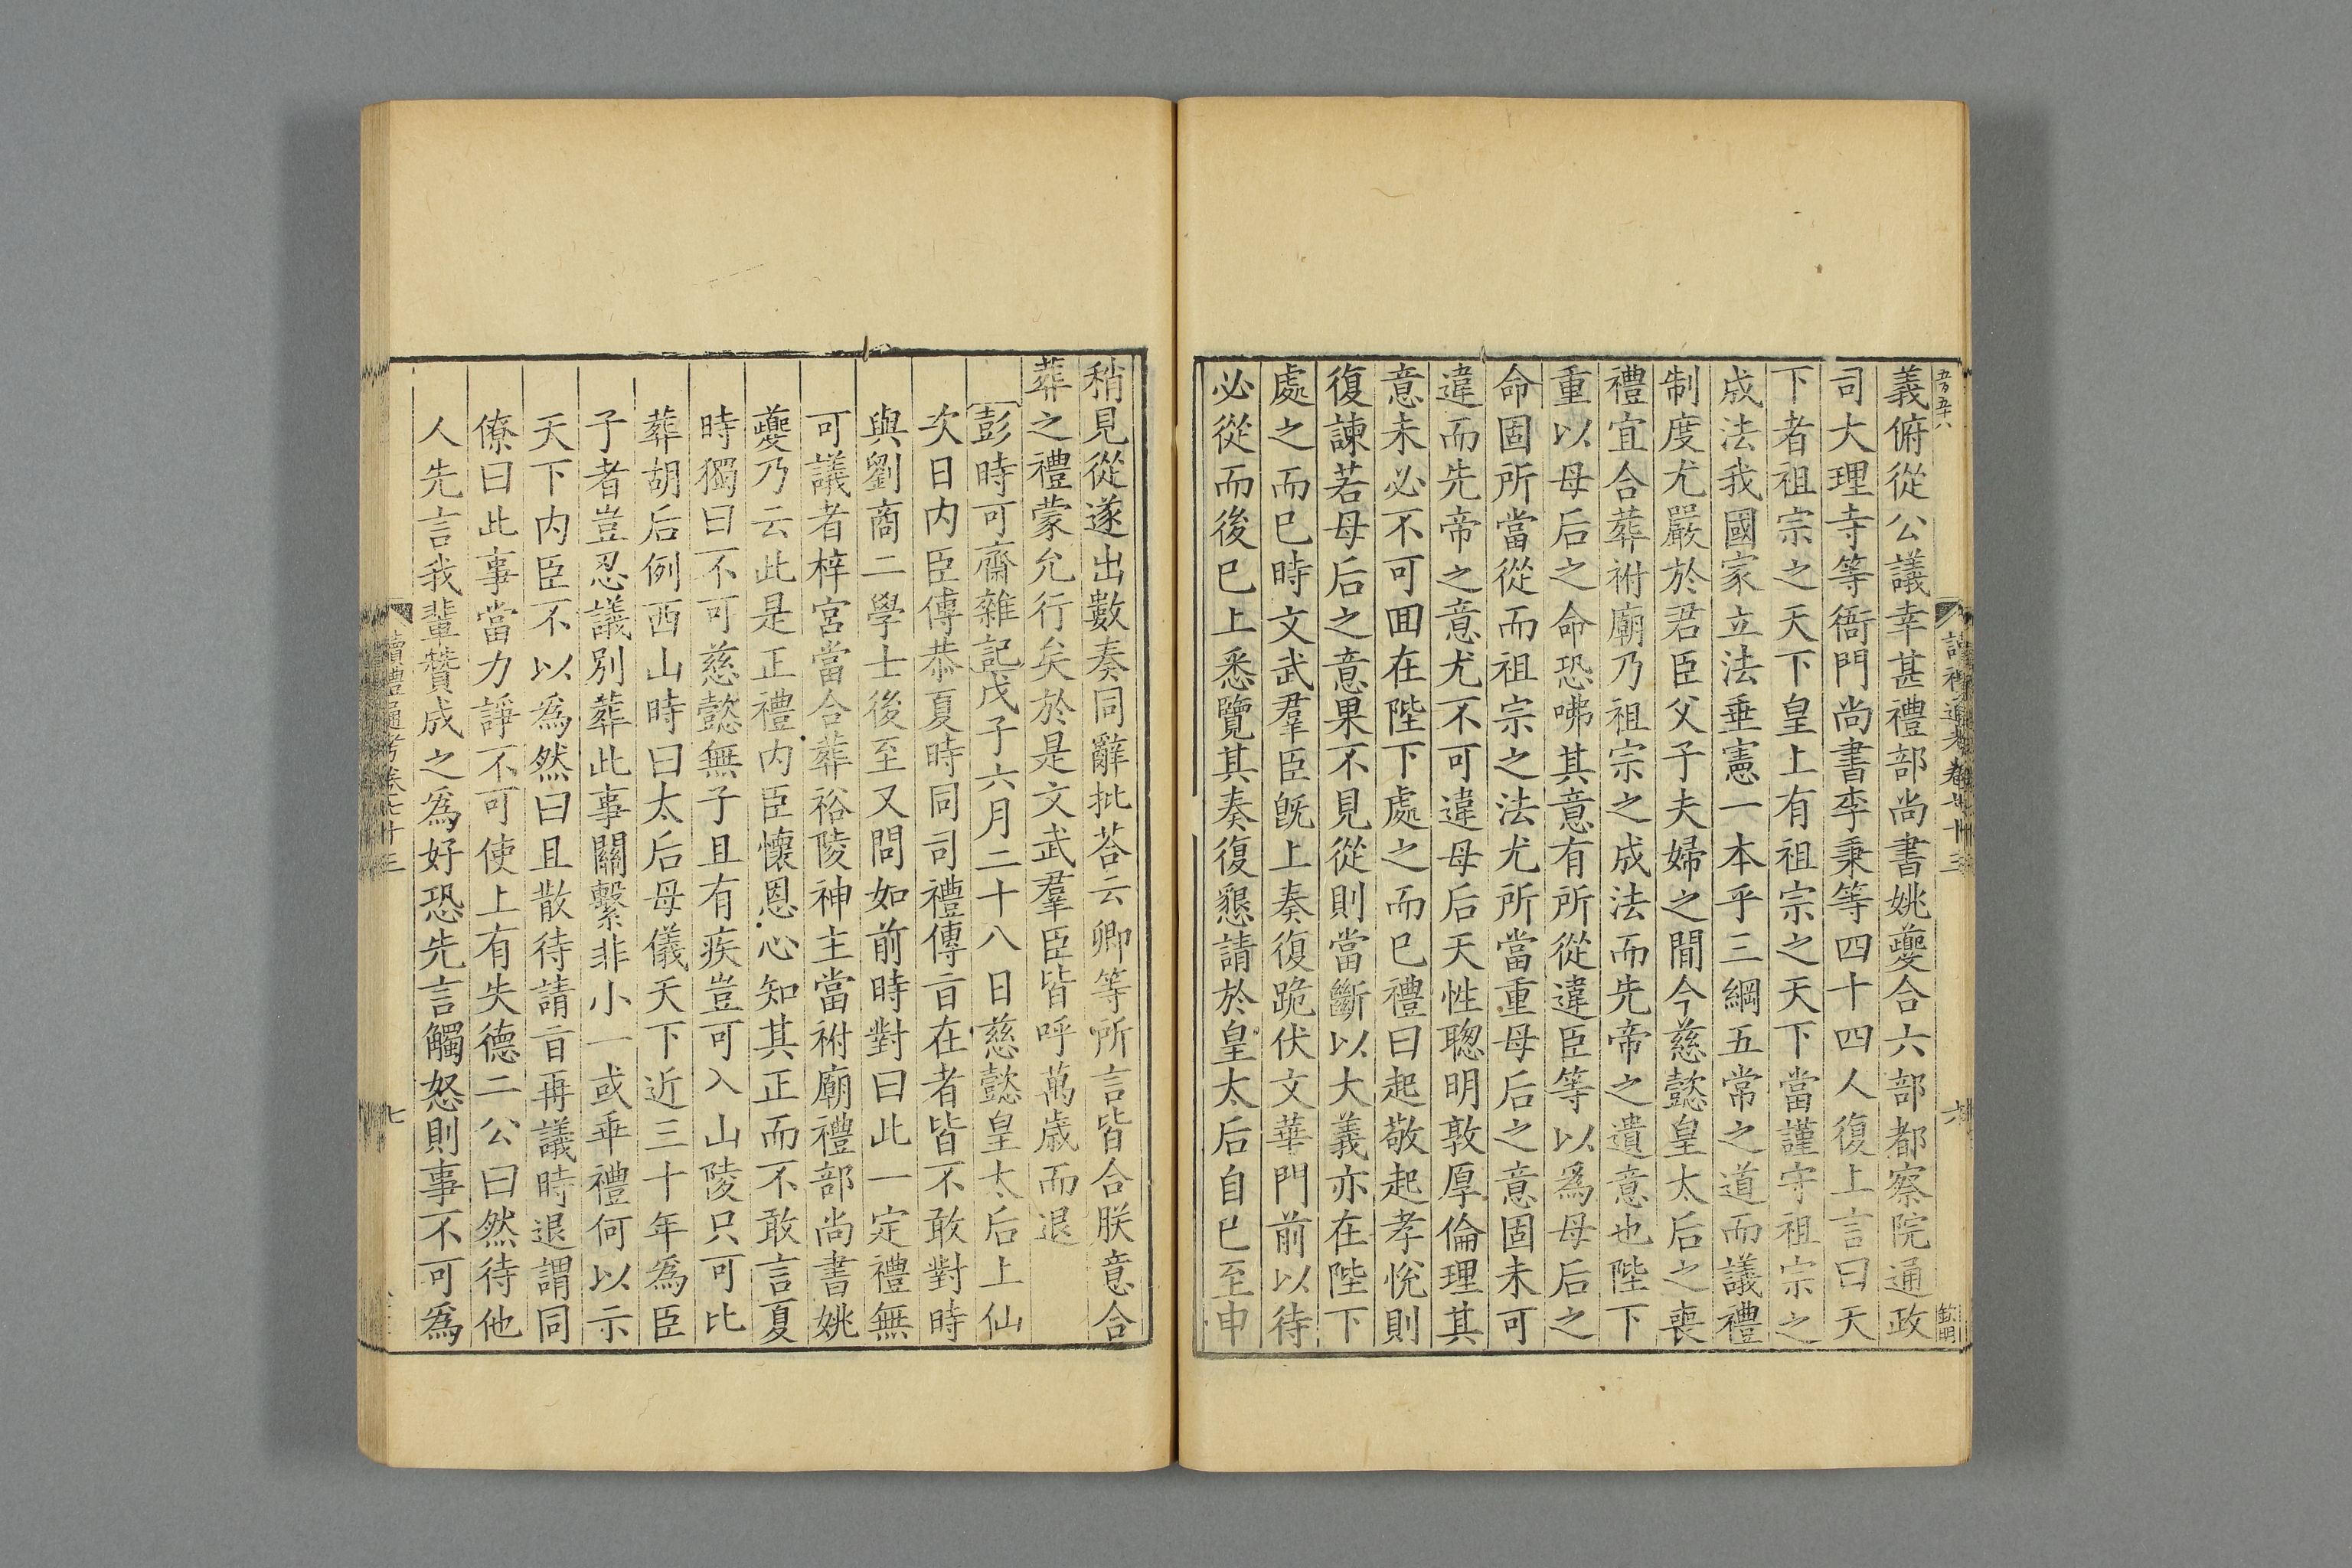 五百五十八
讀禮通考卷七十三
六
義俯從公議幸甚禮部尚書姚夔合六部都察院通政
司大理寺等衙門尚書李秉等四十四人復上言曰天
下者祖宗之天下皇上有祖宗之天下當謹守祖宗之
成法我國家立法垂憲一本乎三綱五常之道而議禮
制度尤嚴於君臣父子夫婦之閒今慈懿皇太后之喪
禮宜合葬祔廟乃祖宗之成法而先帝之遺意也陛下
重以母后之命恐咈其意有所從違臣等以爲母后之
命固所當從而祖宗之法尤所當重母后之意固未可
違而先帝之意尤不可違母后天性聰明敦厚倫理其
意未必不可囬在陛下處之而已禮曰起敬起孝悅則
復諫若母后之意果不見從則當斷以大義亦在陛下
處之而已時文武羣臣旣上奏復跪伏文華門前以待
必從而後已上悉覽其奏復懇請於皇太后自巳至申
稍見從遂出數奏同辭批荅云卿等所言皆合朕意合
葬之禮蒙允行矣於是文武羣臣皆呼萬歲而退
彭時可齋雜記戊子六月二十八日慈懿皇太后上仙
次日内臣傅恭夏時同司禮傳㫖在者皆不敢對時
與劉商二學士後至又問如前時對曰此一定禮無
可議者梓宮當合葬裕陵神主當祔廟禮部尚書姚
夔乃云此是正禮内臣懷恩心知其正而不敢言夏
時獨曰不可慈懿無子且有疾豈可入山陵只可比
葬胡后例西山時曰太后母儀天下近三十年爲臣
子者豈忍議別葬此事關繫非小一或乖禮何以示
天下内臣不以爲然曰且散待請㫖再議時退謂同
僚曰此事當力諍不可使上有失德二公曰然待他
人先言我輩贊成之爲好恐先言觸怒則事不可爲
讀禮通考卷七十三
七